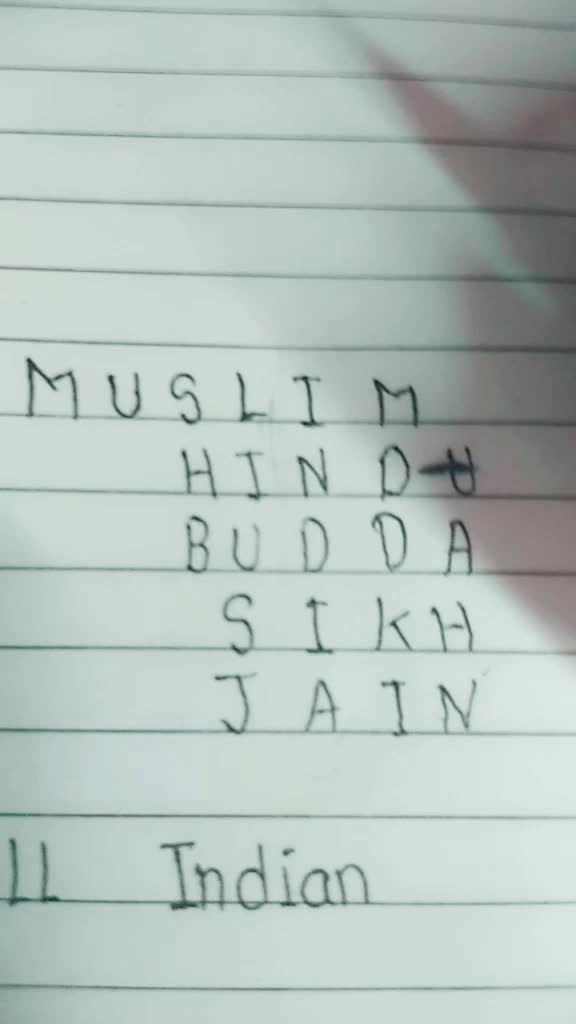 MUSLIM
HINDU
BUDDA
SIKH
JAIN
LL Indian